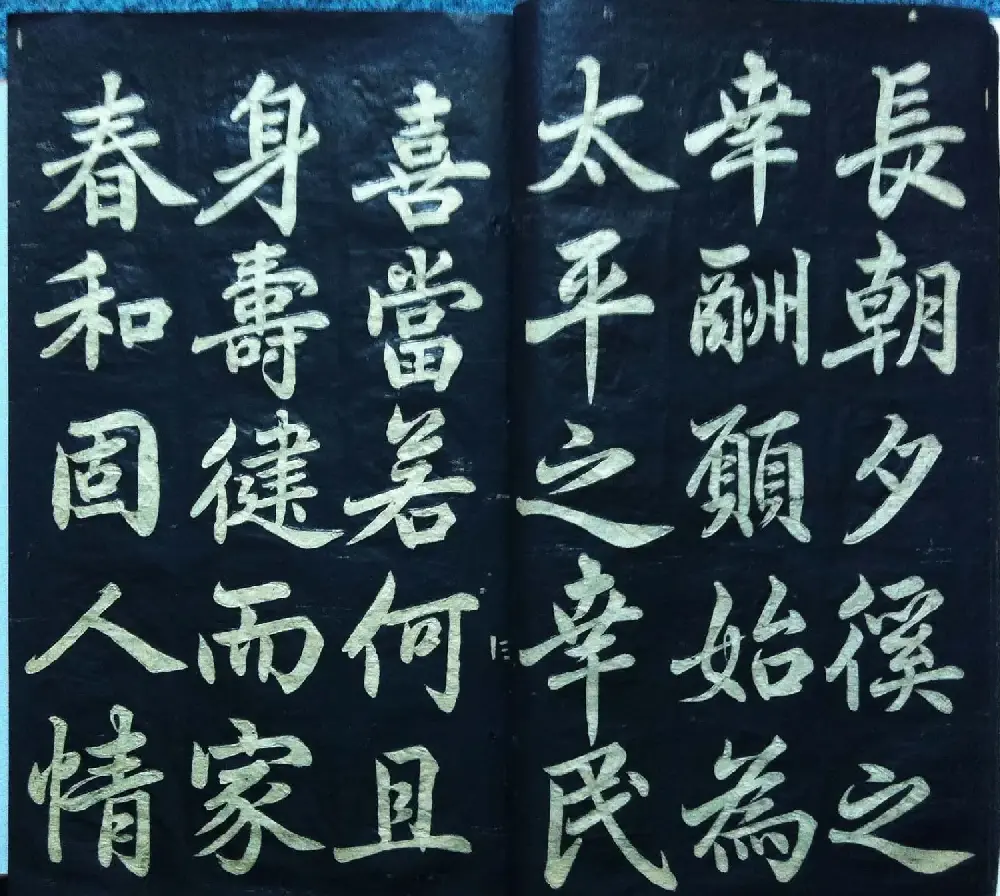 長朝夕徯之
幸酬願始為
太平之幸民
喜當若何且
身壽健而家
春和固人情